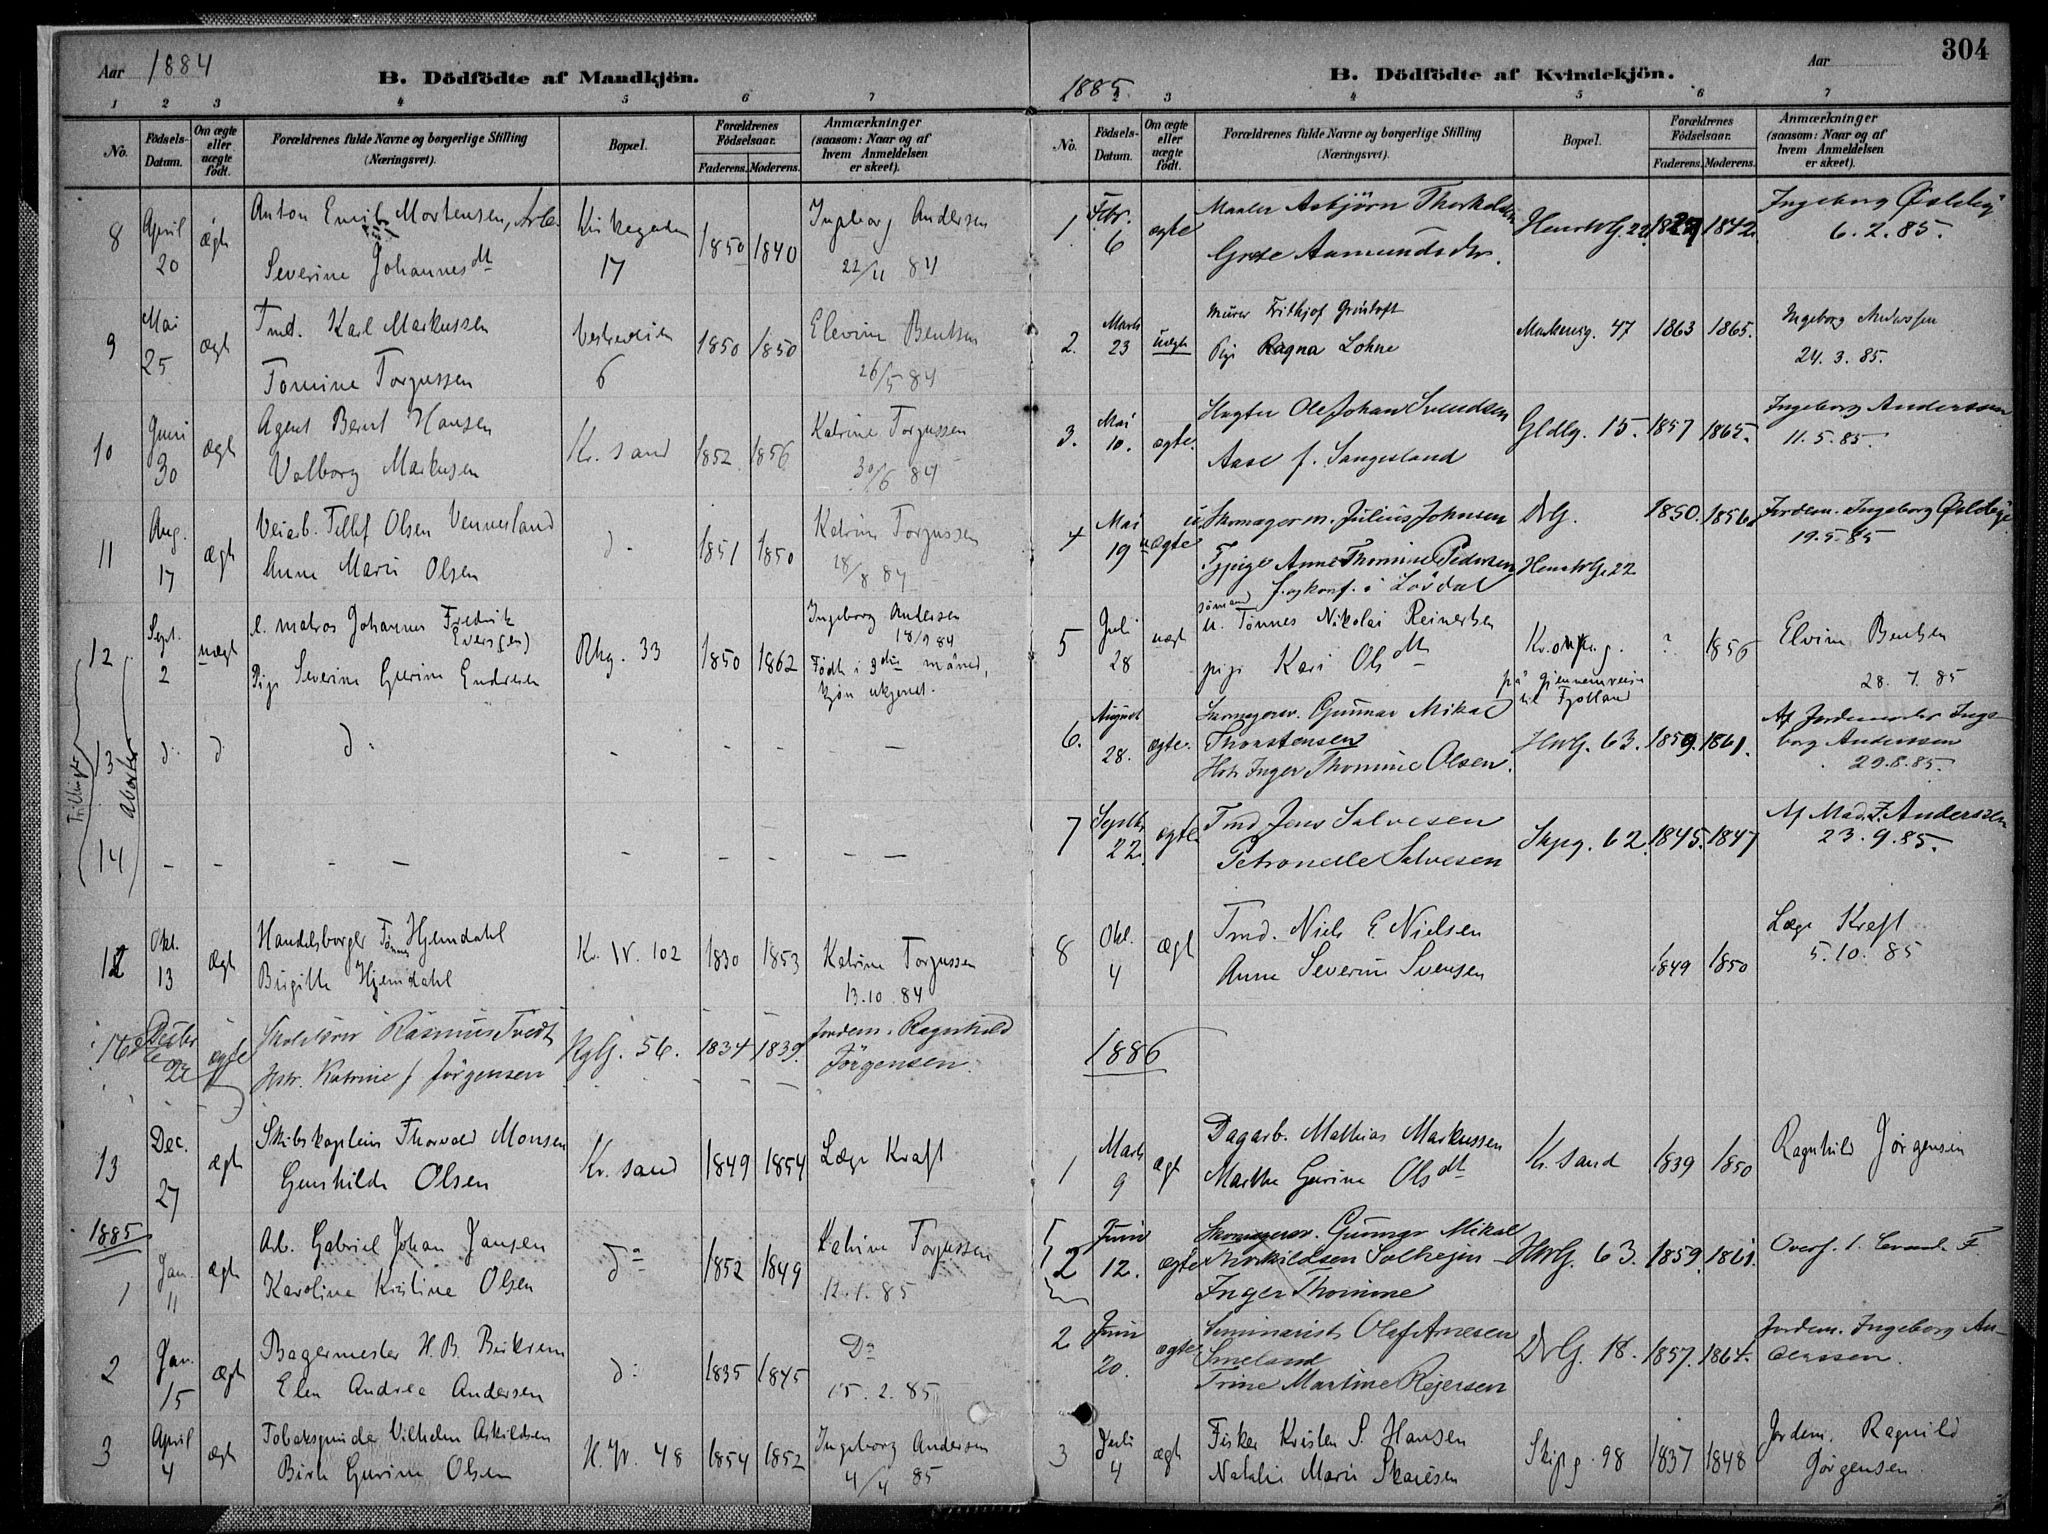 Aar 1884
B. Dödfödte af Mandkjön.
1 2 3 4 5 6 7
No.
Födsels-Datum.
Om ægte eller uægte födt.
Forældrenes fulde Navne og borgerlige Stilling (Næringsvei).
Bopæl.
Forældrenes Födselsaar.
Faderens. Moderens.
Anmærkninger (saasom: Naar og af hvem Anmeldelsen er skeet).
8 April 20 ægt Anton Emil Mortensen, Arb.
Severine Johannesdt
Kirkegaden 17 1850 1840 Ingeborg Andersen
22/4 84
9 Mai 25 ægt Tmd. Karl Markussen
Tomine Torgussen
6 1850 1850 Elevine Bentsen
26/5 84
10 Juni 30 ægt Agent Bernt Hansen
Valborg Markusen
Kr. sand 1852 1856 Katrine Torgussen
30/6 84
11 Aug. 17 ægt Veiarb. Tellef Olsen Vennesland
Anne Marie Olsen
d. 1851 1850 Katrine Torgussen
18/8 84
12 Sept. 2 uægt matros Johannes Fredrik Eversen)
Pige Severine Gurine Endresen
Rhg. 33 1850 1862 Ingeborg Andersen
18/9 84
Födt i 3die måned,
kjön ukjendt.
Trillinger
aborter
13 d. d d.
14 – – –
12 Okt. 13 ægt Handelsborger Tönnes Hjemdahl
Birgitte Hjemdahl
Kr. W. 102 1830 1853 Katrine Torgussen
13.10.84
16 Decbr ægte Rasmus Tvedt
Hstr. Katrine f Jörgensen
56. 1834 1839. Jordem. Ragnhild
Jörgensen.
13 Dec. 27 ægt Skibskaptein Thorvald Monsen
Gunhilde Olsen
Kr. sand 1849 1854 Læge Kraft
1885
1 Jan. 11 ægt Arb. Gabriel Johan Jansen
Karoline Kristine Olsen
do 1852 1849 Katrine Torgussen
12.1.85
2 Jan. 15 ægt Bagermester H. B. Birkrem
Elen Andrea Andersen
d: 1835 1845 Do
15.2.85
3 April 4 ægt Tobakspinder Vilhelm Askildsen
Birte Gurine Olsen
H. W. 48 1854 1852 Ingeborg Andersen
4/4 85
304
Aar
1885
B. Dödfödte af Kvindekjön.
2 3 4 5 6 7
No.
Födsels-Datum.
Om ægte eller uægte födt.
Forældrenes fulde Navne og borgerlige Stilling (Næringsvei).
Bopæl.
Forældrenes Födselsaar.
Faderens. Moderens.
Anmærkninger (saasom: Naar og af hvem Anmeldelsen er skeet).
1 Febr. 6 ægte Maaler Asbjörn Thorkelsen
Grete Aamundsdtr.
22. 1842. Ingeborg Öslebye
6.2.85.
2. Marts 23 uægte murer Frithjof Grüntoft
Pige Ragna Lohne
Markensg. 47 1863 1865. Ingeborg Anderssen
24.3.85.
3. Mai 10. ægte. Slagter Ole Johan Svendsen
Aase f. Sangesland
Gldlg. 15. 1857 1865. Ingeborg Anderssen
11.5.85.
4 Mai 19 uægte u. Skomager m. Julius Johnsen
Tjpige Anne Thomine Pedersen
f. og konf. i Lövdal
DrG.
HenrWG. 22
1850. 1856. Jordem. Ingeborg Öslebye
19.5.85
5 Juli 28 uægt sömand
u. Tönnes Nikolai Reinertsen
pige Kari Olsdt
på gjennemreise
til Fjotland
? 1856 Elvine Bentsen
28.7.85
6. August 28. ægte. Skomagersv. Gunnar Mikal
Thorstensen
Hstr Inger Thomine Olsen.
HWG. 63. 1859. 1861. Af Jordemoder Inge-
borg Anderssen
29.8.85.
7 Septbr 22. ægte Tmd Jens Salvesen
Petronelle Salvesen
Skpg. 62. 1845. 1847 Af Mad. I. Anderssen
23.9.85.
8 Okt. 4 ægt Tmd. Niels E. Nielsen
Anne Severine Svensen
1849 1850 Læge Kraft
5.10.85
1886
1 Marts 9 ægt Dagarb. Mathias Markussen
Marthe Gurine Olsdt
Kr. sand 1839 1850 Ragnhild Jörgensen
2 Juni 12. ægte Skomagersv. Gunnar Mikal
Inger Thomine
HWG. 63. 1859. 1861.
2 Juni 20. ægte Seminarist Olaf Arnesen
Smeland
Trine Martine Rejersen
DrG. 18. 1857. 1864. Jordem. Ingeborg An-
derssen.
3 Juli 4 ægt Fisker Kristen S. Hansen
Natalie Marie Skaiesen
Skipg. 98 1837 1848 Jordem. Ragnild
Jörgensen